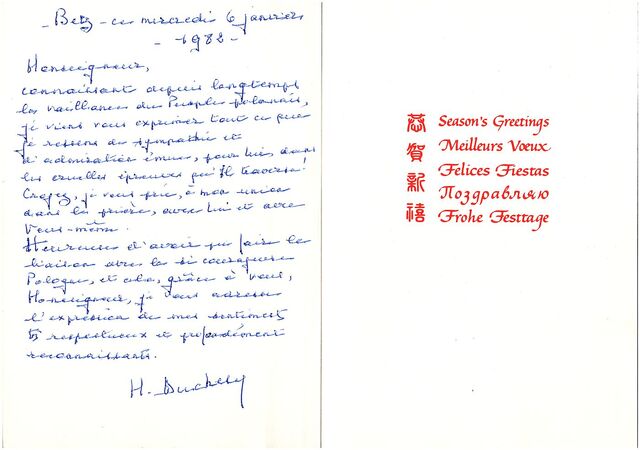 - Betz - ce mercredi 6 janvier
- 1982 -
Monseigneur,
connaissant depuis longtemps
la vaillance du Peuple polonais,
je viens vous exprimer tout ce que
je ressens de sympathie et
d'admiration émue, pour lui, dans
les cruelles épreuves qu'Il traverse!
Croyez, je vous prie, à mon union
dans la prière, avec Lui et avec
Vous-même.
Heureuse d'avoir pu faire la
liaison avec la si courageuse
Pologne, et cela, grâce à vous,
Monseigneur, je vous adresse
l'expression de mes sentiments
très respectueux et profondément
reconnaissants.
H.
恭賀新禧
Season's Greetings
Meilleurs Voeux
Felices Fiestas
Поздравляю
Frohe Festtage